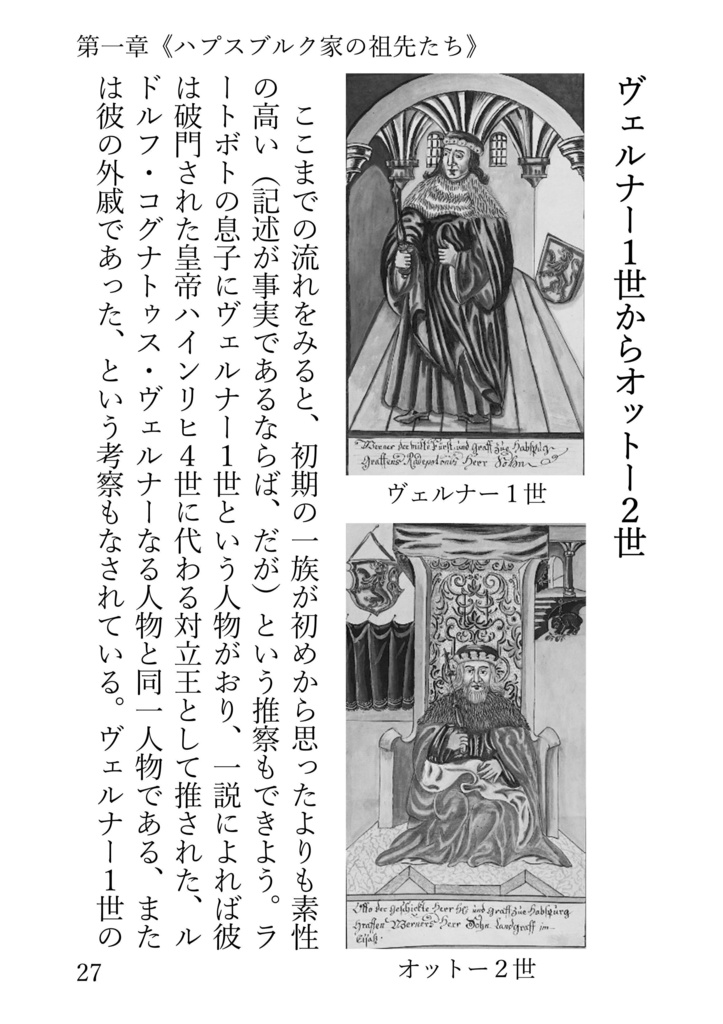 第一章《ハプスブルク家の祖先たち》
ヴェルナー1世からオットー2世
Graffens Radepotonis Herr Sohn
ヴェルナー1世
Otto der geschickte Herr
und graff züe Habspürg
Graffen Werners Herr Sohn Landgraff im
オットー2世
ここまでの流れをみると、初期の一族が初めから思ったよりも素性
の高い（記述が事実であるならば、だが）という推察もできよう。ラ
ートボトの息子にヴェルナー1世という人物がおり、一説によれば彼
は破門された皇帝ハインリヒ4世に代わる対立王として推された、ル
ドルフ・コグナトゥス・ヴェルナーなる人物と同一人物である、また
は彼の外戚であった、という考察もなされている。ヴェルナー1世の
27